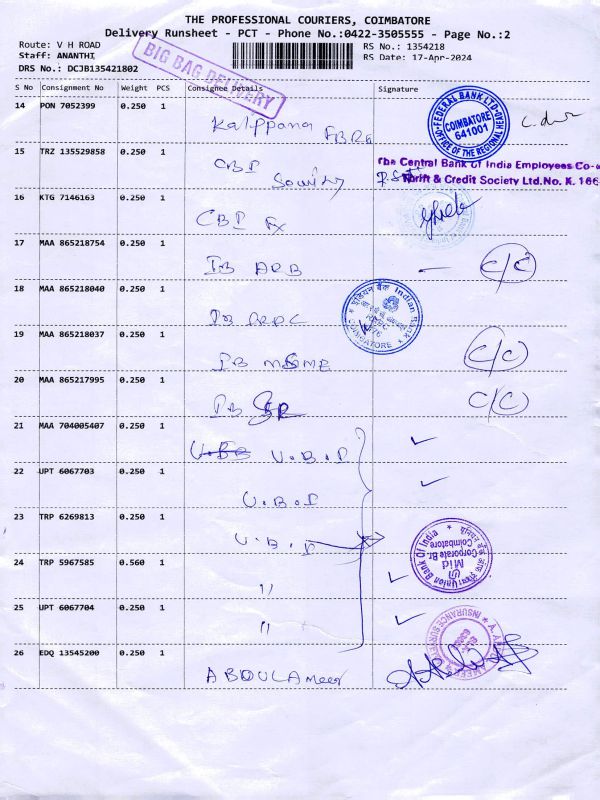 THE PROFESSIONAL COURIERS, COIMBATORE
Delivery Runsheet - PCT - Phone No.:0422-3505555 - Page No.:2
Route: V H ROAD
Staff: ANANTHI
DRS No.: DCJB135421802
RS No.: 1354218
RS Date: 17-Apr-2024
BIG BAG DELIVERY
S No Consignment No Weight PCS Consignee Details Signature
14 PON 7052399 0.250 1 Kalippana
FEDERAL BANK LTD
COIMBATORE
641001
OFFICE OF THE REGIONAL HEAD
15 TRZ 135529858 0.250 1 CBI
The Central Bank Of India Employees Co-o
Thrift & Credit Society Ltd.No. K. 166
16 KTG 7146163 0.250 1 CBI
17 MAA 865218754 0.250 1 IB ARB C/C
18 MAA 865218040 0.250 1 IB
इंडियन बैंक Indian Bank
COIMBATORE
19 MAA 865218037 0.250 1 IB MSME C/C
20 MAA 865217995 0.250 1 IB C/C
21 MAA 704005407 0.250 1 U.B.I
22 UPT 6067703 0.250 1 U.B.I
23 TRP 6269813 0.250 1 U.B.I
Union Bank Of India
Mid
Corporate Br.
Coimbatore
24 TRP 5967585 0.560 1 "
25 UPT 6067704 0.250 1 "
26 EDQ 13545200 0.250 1 ABDUL Ameer
INSURANCE SURVEY